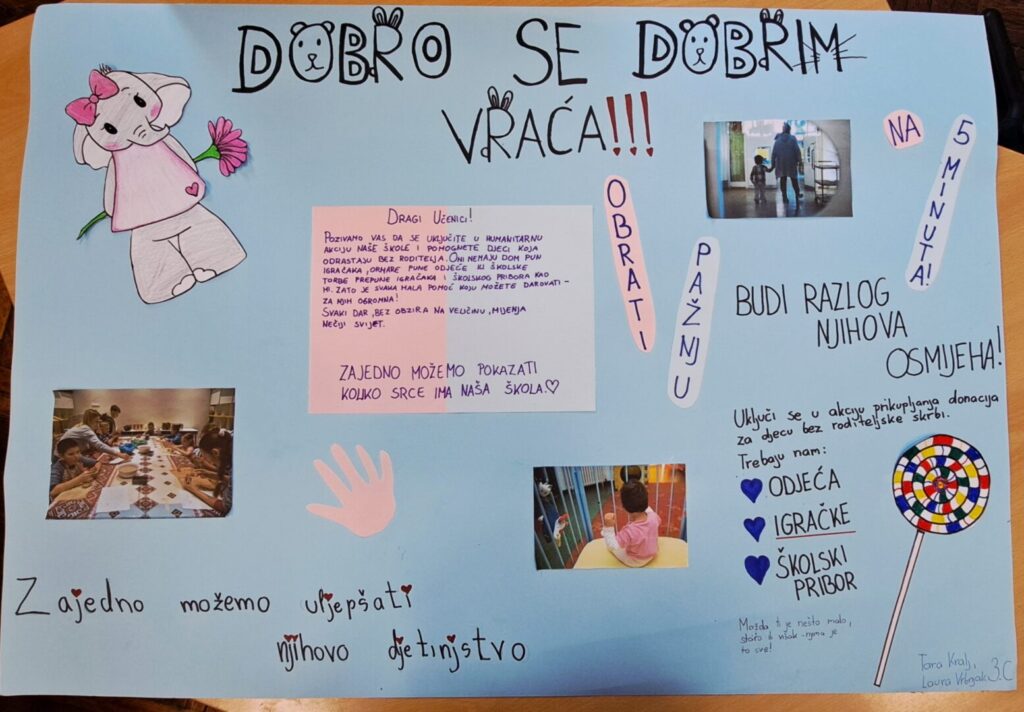 DOBRO SE DOBRIM
VRAĆA!!!
NA
5 MINUTA!
OBRATI
PAŽNJU
DRAGI UČENICI!
POZIVAMO VAS DA SE UKLJUČITE U HUMANITARNU
AKCIJU NAŠE ŠKOLE I POMOGNETE DJECI KOJA
ODRASTAJU BEZ RODITELJA. ONI NEMAJU DOM PUN
IGRAČAKA, ORMARE PUNE ODJEĆE ILI ŠKOLSKE
TORBE PREPUNE IGRAČAKA I ŠKOLSKOG PRIBORA KAO
MI. ZATO JE SVAKA MALA POMOĆ KOJU MOŽETE DAROVATI -
ZA NJIH OGROMNA!
SVAKI DAR, BEZ OBZIRA NA VELIČINU, MIJENJA
NEČIJI SVIJET.
ZAJEDNO MOŽEMO POKAZATI
KOLIKO SRCE IMA NAŠA ŠKOLA.♡
BUDI RAZLOG
NJIHOVA
OSMIJEHA!
Uključi se u akciju prikupljanja donacija
za djecu bez roditeljske skrbi.
Trebaju nam:
ODJEĆA
IGRAČKE
ŠKOLSKI
PRIBOR
Možda ti je nešto malo,
staro ili višak - njima je
to sve!
Zajedno možemo uljepšati
njihovo djetinjstvo
Tara Kralj,
Laura 3.C